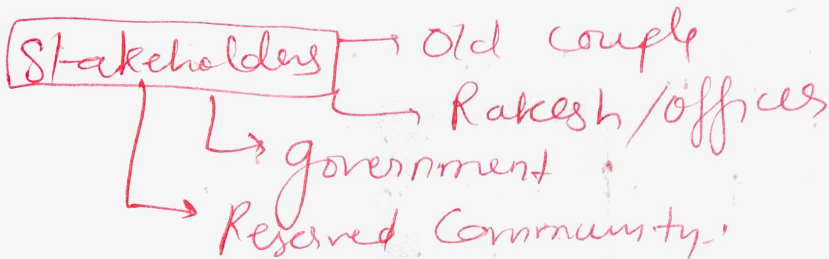 Stakeholders → Old couple
→ Rakesh/offices
→ government
→ Reserved Community.